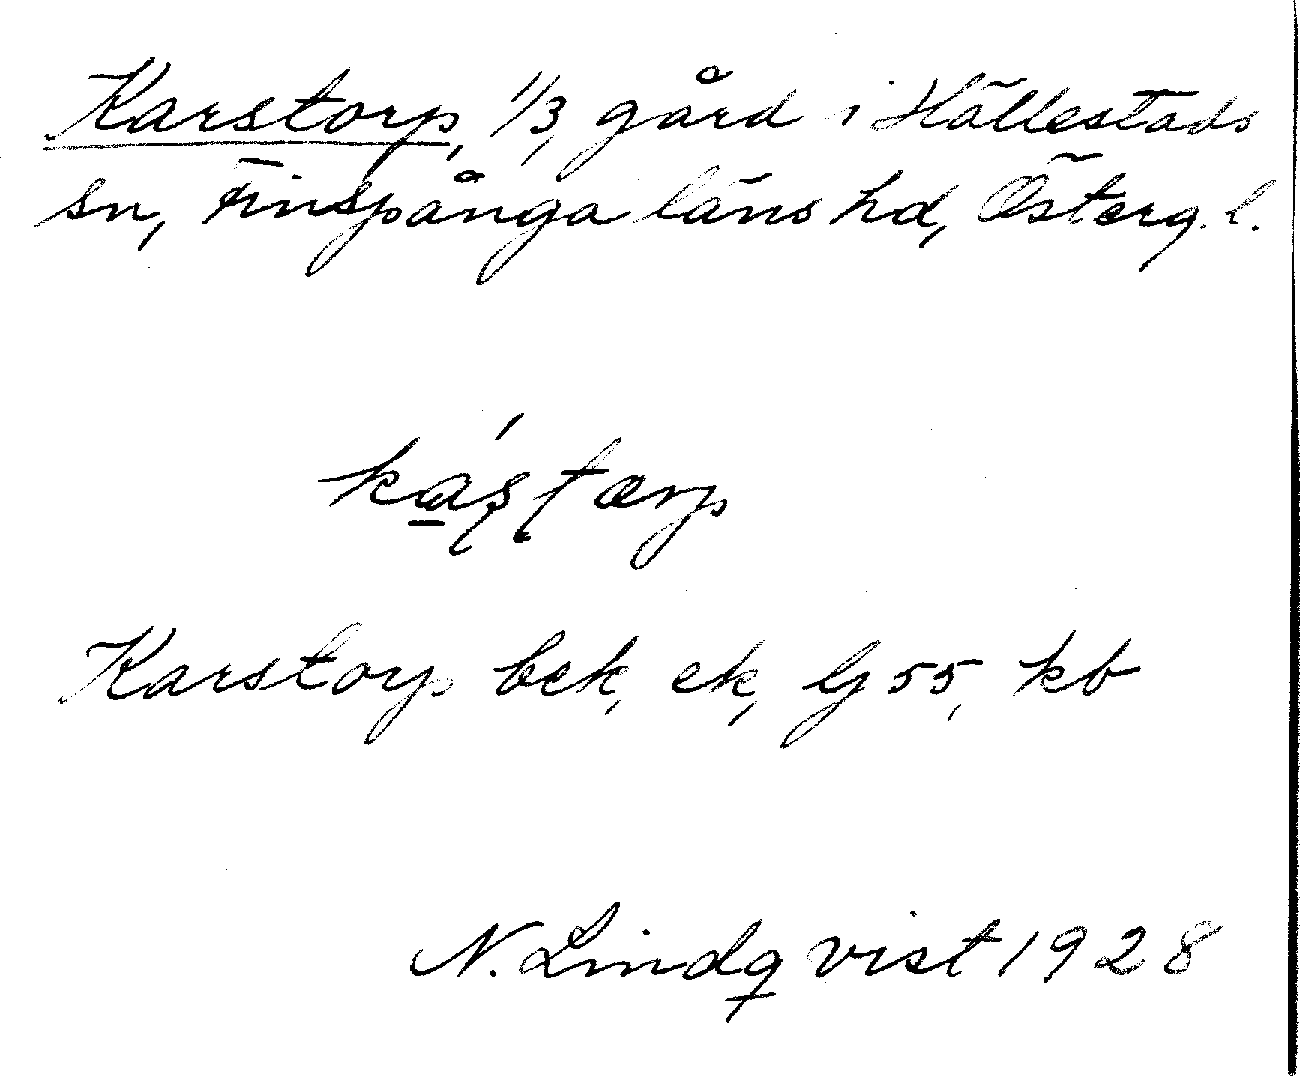 Karstorp, 1/3 gård i Hällestads
sn, Finspånga läns hd, Österg. l.
ka̲ʂ́ʈærp
Karstorp bek, ek, Gj 55, kb
N. Lindqvist 1928